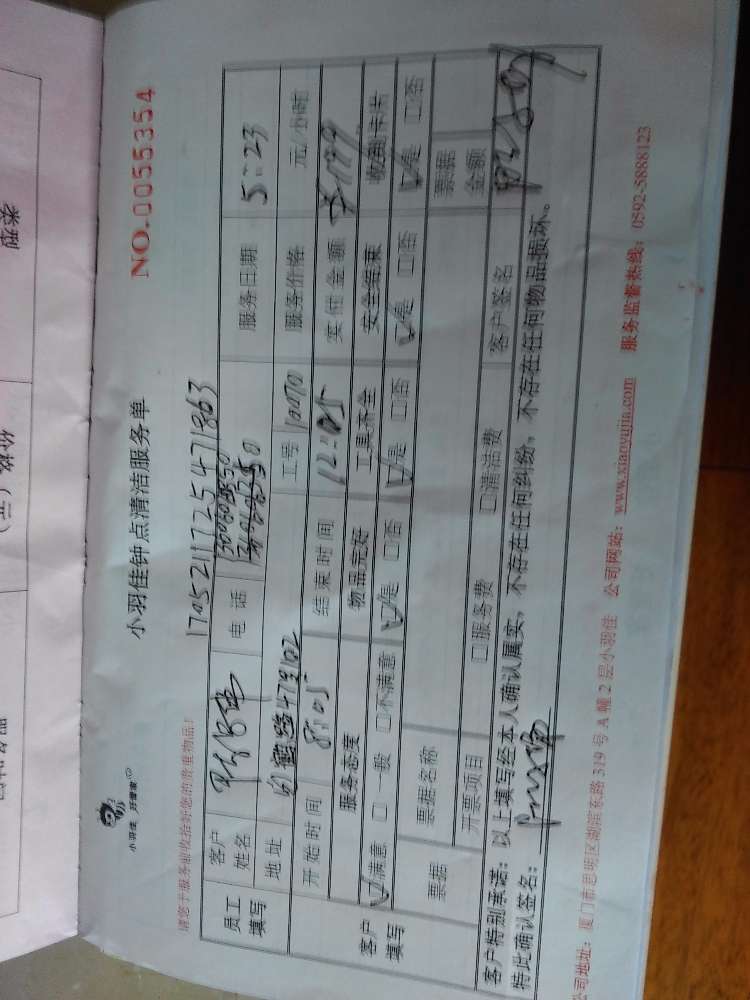 类型
价格（元）
小羽佳 好管家
小羽佳钟点清洁服务单
NO.0055354
请您于服务前收拾好您的贵重物品!
17052117254718​63
员工填写
客户姓名
电话
服务日期 5:23
地址 479 102
工号 10070
服务价格 元/小时
开始时间 8:05
结束时间 12:05
实付金额
客户填写
服务态度 物品完好 工具齐全 安全结束 收到卡片
☑满意 □一般 □不满意 ☑是 □否 ☑是 □否 ☑是 □否 ☑是 □否
票据
票据名称
票据金额
开票项目 □服务费 □清洁费
客户签名
客户特别承诺：以上填写经本人确认属实，不存在任何纠纷，不存在任何物品损坏。
特此确认签名：
公司地址：厦门市思明区湖滨东路 319 号 A 幢 2 层小羽佳 公司网站：www.xiaoyujia.com 服务监督热线：0592-5888123